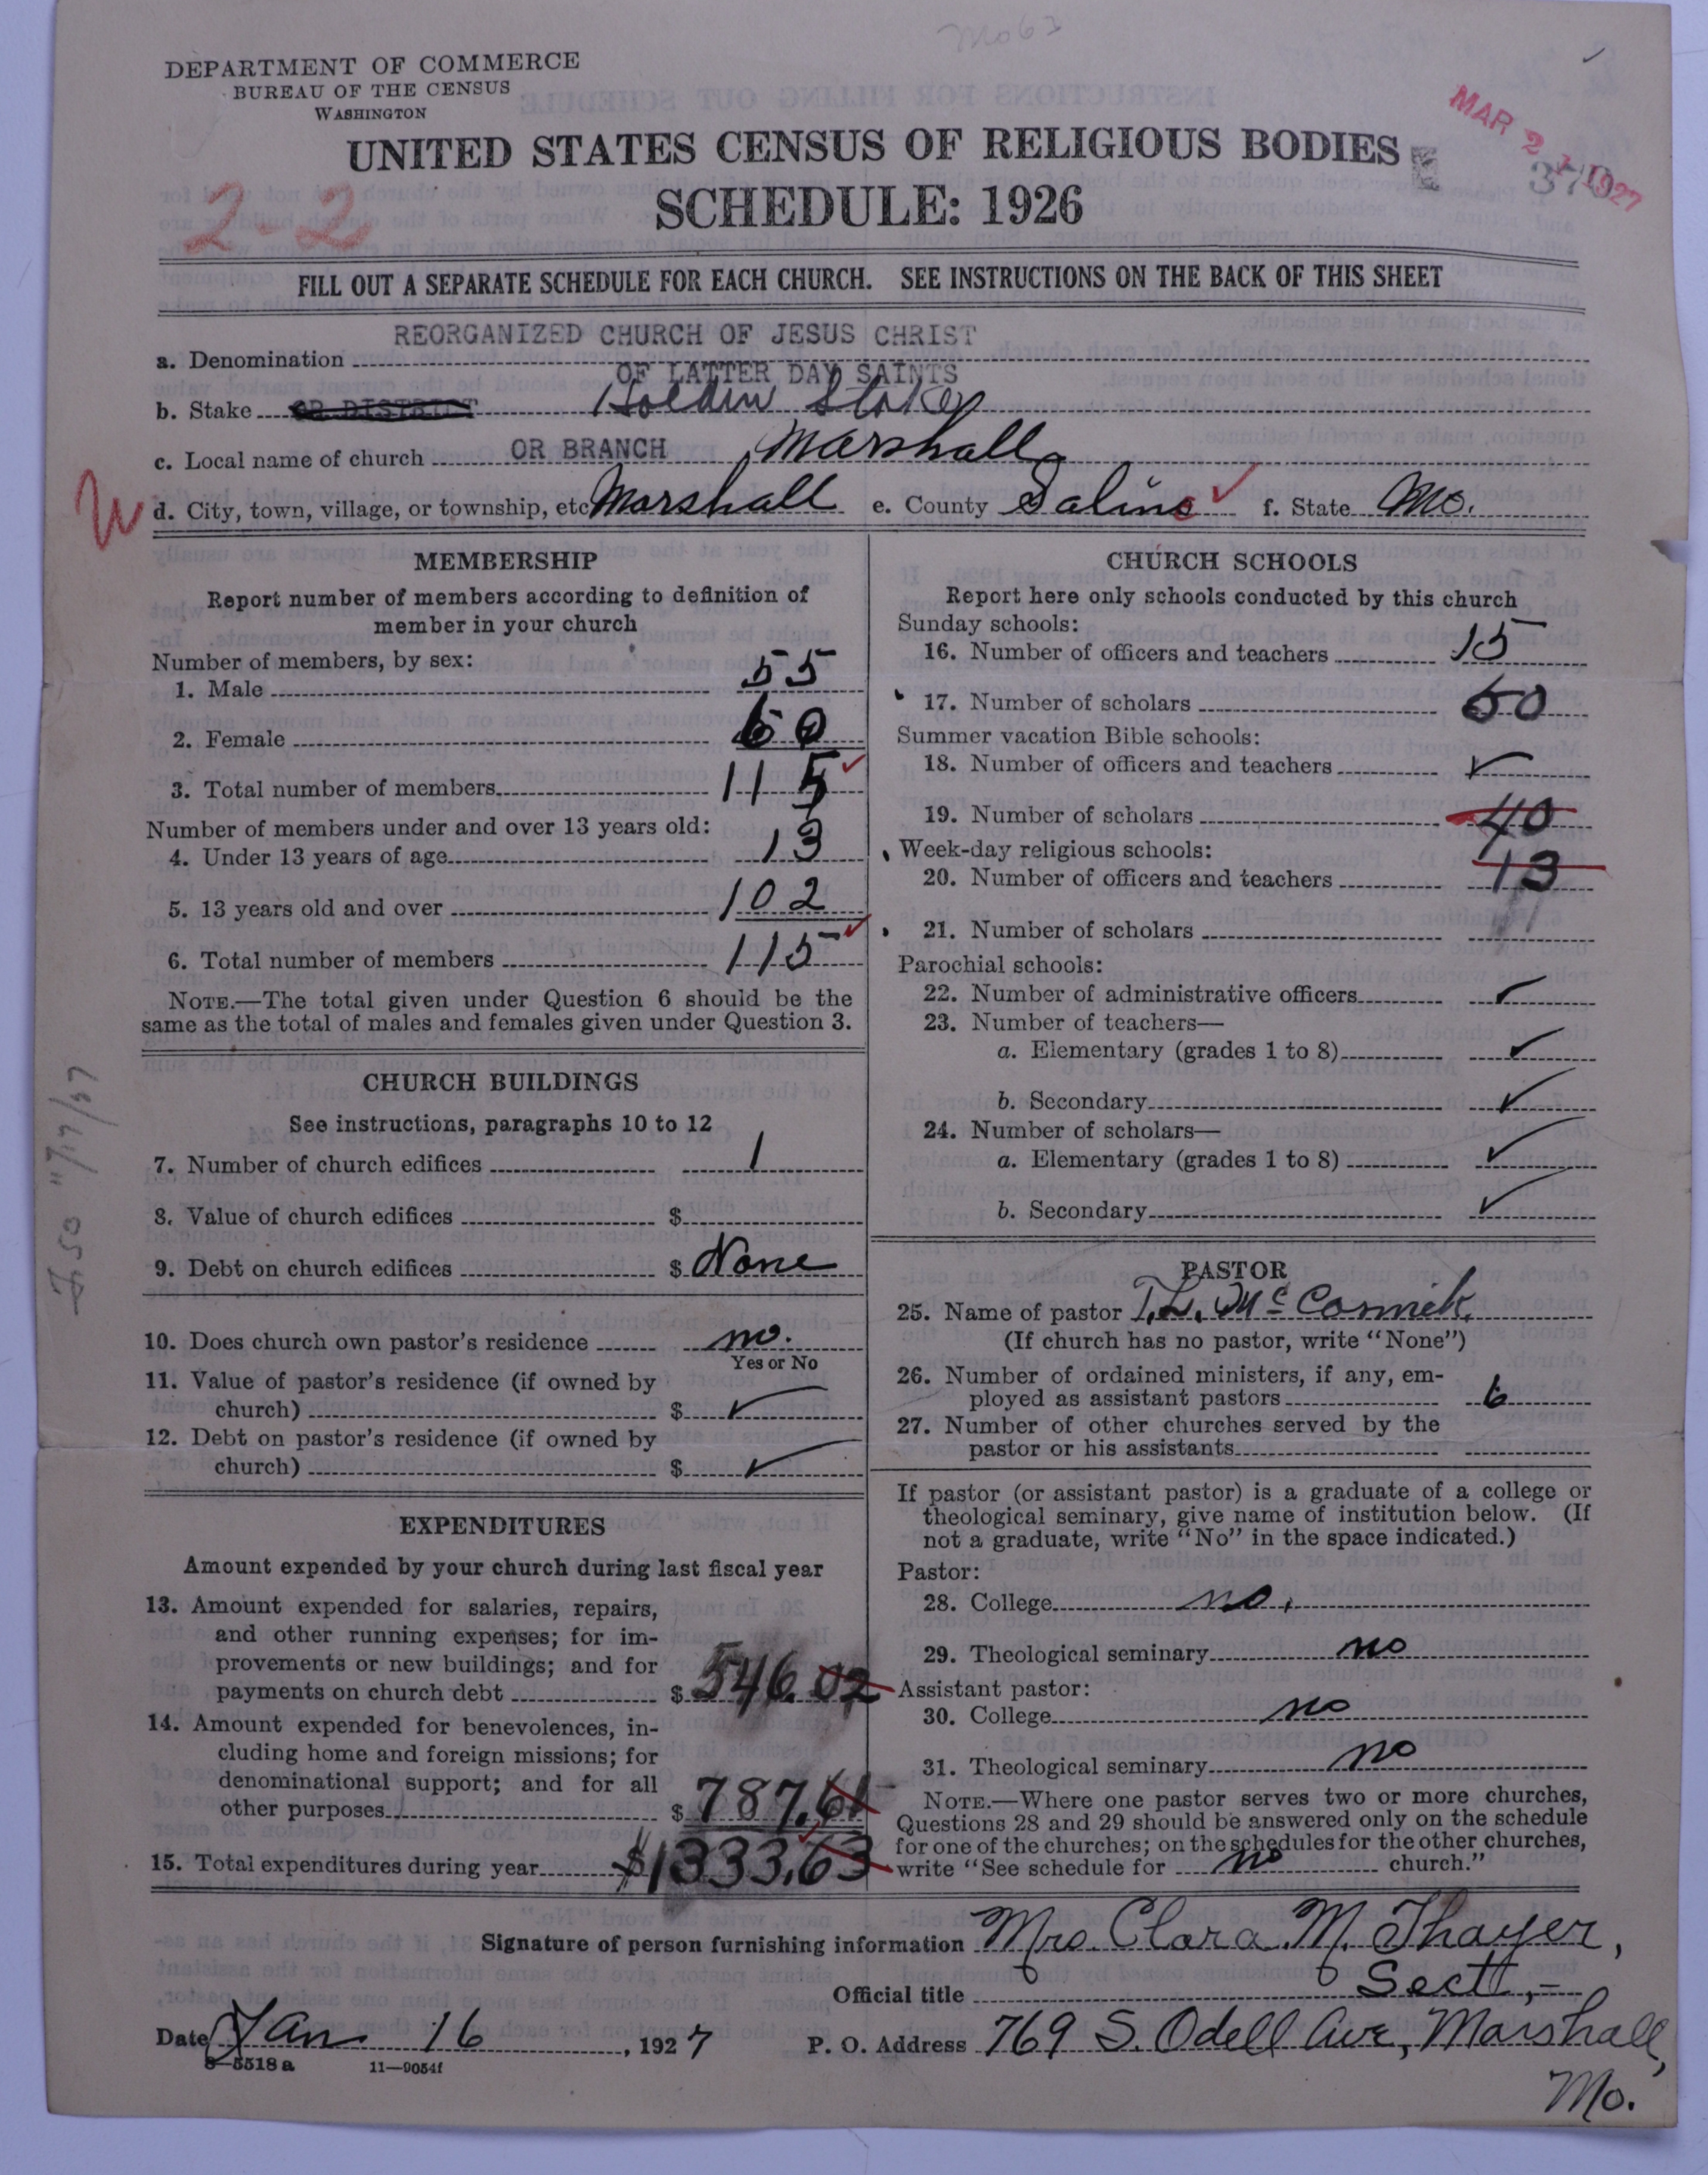 Mo63
DEPARTMENT OF COMMERCE
BUREAU OF THE CENSUS
WASHINGTON
UNITED STATES CENSUS OF RELIGIOUS BODIES
SCHEDULE: 1926
MAR 2 1 1927
2-2
FILL OUT A SEPARATE SCHEDULE FOR EACH CHURCH. SEE INSTRUCTIONS ON THE BACK OF THIS SHEET
REORGANIZED CHURCH OF JESUS CHRIST
a. Denomination
OF LATTER DAY SAINTS
b. Stake OR DISTRICT Holden Stake
c. Local name of church OR BRANCH Marshall
W d. City, town, village, or township, etc Marshall e. County Saline f. State Mo.
MEMBERSHIP
Report number of members according to definition of
member in your church
Number of members, by sex:
1. Male 55
2. Female 60
3. Total number of members 115
Number of members under and over 13 years old:
4. Under 13 years of age 13
5. 13 years old and over 102
6. Total number of members 115
NOTE.—The total given under Question 6 should be the
same as the total of males and females given under Question 3.
CHURCH BUILDINGS
See instructions, paragraphs 10 to 12
7. Number of church edifices 1
8. Value of church edifices $
9. Debt on church edifices $ None
10. Does church own pastor's residence no.
Yes or No
11. Value of pastor's residence (if owned by
church) $ ✓
12. Debt on pastor's residence (if owned by
church) $ ✓
EXPENDITURES
Amount expended by your church during last fiscal year
13. Amount expended for salaries, repairs,
and other running expenses; for im-
provements or new buildings; and for
payments on church debt $ 546.02
14. Amount expended for benevolences, in-
cluding home and foreign missions; for
denominational support; and for all
other purposes $ 787.61
15. Total expenditures during year $1333.63
CHURCH SCHOOLS
Report here only schools conducted by this church
Sunday schools:
16. Number of officers and teachers 15
17. Number of scholars 60
Summer vacation Bible schools:
18. Number of officers and teachers ✓
19. Number of scholars 40
Week-day religious schools:
20. Number of officers and teachers 13
21. Number of scholars
Parochial schools:
22. Number of administrative officers ✓
23. Number of teachers—
a. Elementary (grades 1 to 8) ✓
b. Secondary ✓
24. Number of scholars—
a. Elementary (grades 1 to 8) ✓
b. Secondary ✓
PASTOR
25. Name of pastor T.L. McCormick.
(If church has no pastor, write "None")
26. Number of ordained ministers, if any, em-
ployed as assistant pastors 6
27. Number of other churches served by the
pastor or his assistants
If pastor (or assistant pastor) is a graduate of a college or
theological seminary, give name of institution below. (If
not a graduate, write "No" in the space indicated.)
Pastor:
28. College no.
29. Theological seminary no
Assistant pastor:
30. College no
31. Theological seminary no
NOTE.—Where one pastor serves two or more churches,
Questions 28 and 29 should be answered only on the schedule
for one of the churches; on the schedules for the other churches,
write "See schedule for no church."
Signature of person furnishing information Mrs. Clara M. Thayer,
Official title Sect,-
Date Jan 16, 1927 P. O. Address 769 S. Odell Ave, Marshall,
8—5518a 11—9054f
Mo.